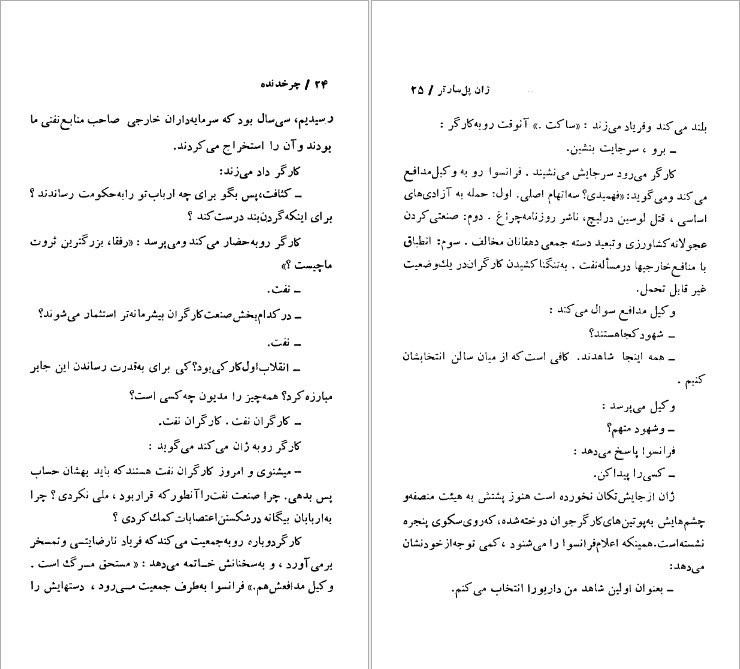 ۲۴ / چرخدنده
رسیدیم، سی‌سال بود که سرمایه‌داران خارجی صاحب منابع‌نفتی ما
بودند وآن را استخراج می‌کردند.
کارگر داد می‌زند:
ـ کثافت،پس بگو برای چه ارباب‌تو رابه‌حکومت رساندند ؟
برای اینکه گردن‌بند درست‌کند ؟
کارگر روبه‌حضار می‌کند ومی‌پرسد : «رفقا، بزرگترین ثروت
ماچیست ؟»
ـ نفت.
ـ درکدام‌بخش‌صنعت‌کارگران بیشرمانه‌تر استثمار می‌شوند؟
ـ نفت.
ـ انقلاب‌اول‌کارکی‌بود؟کی برای به‌قدرت رساندن این جابر
مبارزه‌کرد؟ همه‌چیز را مدیون چه‌کسی است؟
ـ کارگران نفت . کارگران نفت.
کارگر روبه ژان می‌کند می‌گوید :
ـ میشنوی و امروز کارگران نفت هستندکه باید بهشان حساب
پس بدهی. چرا صنعت نفت‌راآنطورکه قراربود ، ملی نکردی ؟ چرا
به‌اربابان بیگانه درشکستن‌اعتصابات کمك‌کردی ؟
کارگردوباره روبه‌جمعیت می‌کندکه فریاد نارضایتی و تمسخر
برمی‌آورد ، و به‌سخنانش خاتمه می‌دهد : «مستحق مرگ است .
وکیل مدافعش‌هم.» فرانسوا به‌طرف جمعیت می‌رود ، دستهایش را
ژان پل‌سارتر / ۲۵
بلند می‌کند وفریاد می‌زند : «ساکت .» آنوقت روبه‌کارگر :
ـ برو ، سرجایت بنشین.
کارگر می‌رود سرجایش می‌نشیند . فرانسوا رو به وکیل‌مدافع
می‌کند ومی‌گوید: «فهمیدی؟ سه‌اتهام اصلی. اول: حمله به آزادی‌های
اساسی ، قتل لوسین درلیج، ناشر روزنامه‌چراغ . دوم: صنعتی‌کردن
عجولانه‌کشاورزی و تبعید دسته جمعی دهقانان مخالف . سوم: انطباق
با منافع‌خارجیها درمسأله‌نفت . به‌تنگناکشیدن کارگران‌در یك‌وضعیت
غیر قابل تحمل.
وکیل مدافع سوال می‌کند :
ـ شهودکجاهستند؟
ـ همه اینجا شاهدند. کافی است‌که از میان سالن انتخابشان
کنیم .
وکیل می‌پرسد :
ـ وشهود متهم؟
فرانسوا پاسخ می‌دهد :
ـ کسی‌را پیداکن.
ژان ازجایش‌تکان نخورده است هنوز پشتش به هیئت منصفه‌و
چشم‌هایش به‌پوتین‌های‌کارگرجوان دوخته‌شده،که‌روی‌سکوی پنجره
نشسته‌است.همینکه اعلام‌فرانسوا را می‌شنود ، کمی توجه‌ازخودنشان
می‌دهد:
ـ بعنوان اولین شاهد من داربورا انتخاب می‌کنم.